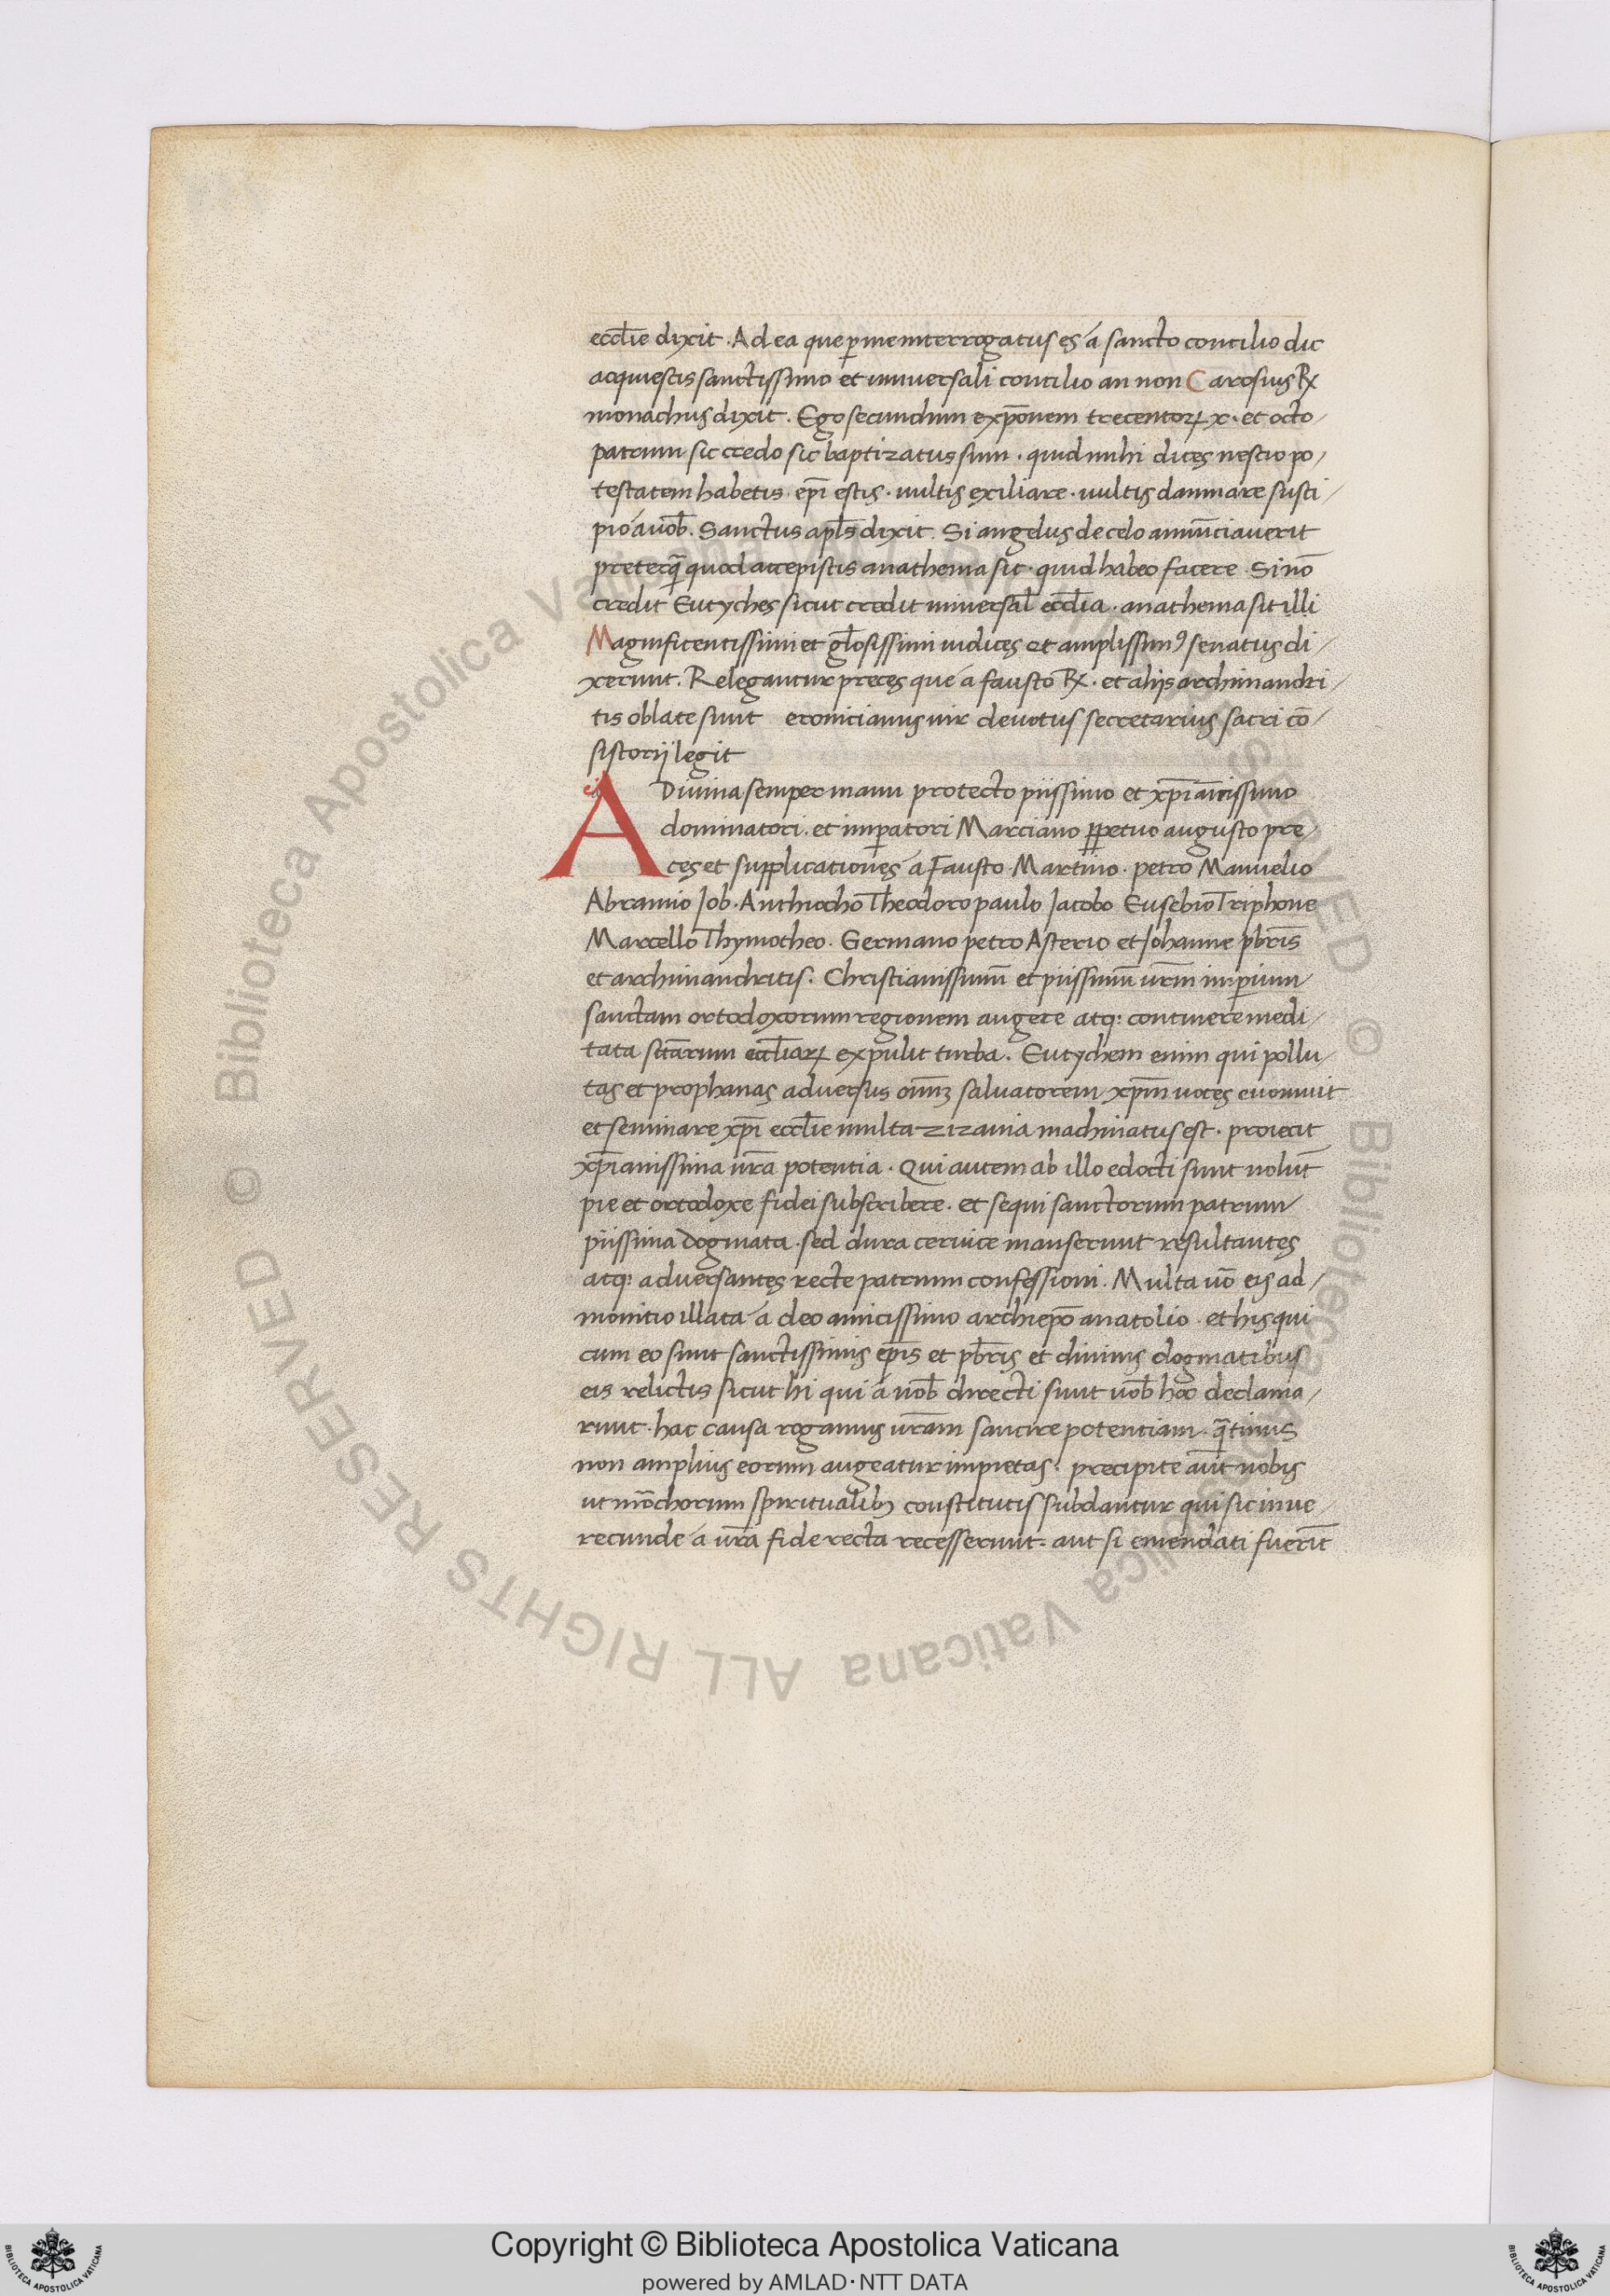 eccl̄ie dixit. Ad ea que ꝑ me interrogatus es á sancto concilio dic
acquiestis sanctissimo et uniuersali concilio an non Carosius ℞
monachus dixit. Ego secundum exp̄onem trecentoꝝ x. et octo
patrum sic credo sic baptizatus sum. quid mihi dices nescio po/
testatem habetis. ep̄i estis. uultis exiliare. uultis damnare susci/
pio á uob̄. Sanctus apl̄s dixit. Si angelus de celo annūciauerit
preterq̄ quod accepistis anathema sit. quid habeo facere. Si nō
credit Eutyches sicut credit uniuersal̄ eccl̄ia. anathema sit illi
Magnificentissimi et gl̄osissimi iudices et amplissimꝰ senatus di/
xerunt. Relegantur preces que á fausto ℞. et alijs archimandri/
tis oblate sunt eronicianus uir deuotus secretarius sacri cō/
sistorij legit
A Diuina semper manu protecto piissimo et xp̄i amicissimo
dominatori. et imꝑatori Marciano ꝑpetuo augusto pre/
ces et supplicationes á Fausto. Martino. petro Manuelio
Abramio Job. Anthiocho Theodoro paulo Jacobo Eusebio Triphone
Marcello Thymotheo. Germano petro Asterio et Johanne pb̄ris
et archimandritis. Christianissimū et piissimū ur̄m imꝑium
sanctam ortodoxorum regionem augere atq; continere medi/
tata sc̄tarum eccl̄iaꝝ expulit turba. Eutychem enim qui pollu/
tas et prophanas aduersus om̄ꝫ saluatorem xp̄m uoces euomuit
et seminare xp̄i eccl̄ie multa zizania machinatus est. proiecit
xp̄ianissima ur̄a potentia. Qui autem ab illo edocti sunt nolūt
pie et ortodoxe fidei subscribere. et sequi sanctorum patrum
piissima dogmata. sed dura ceruice manserunt resultantes
atq; aduersantes recte patrum confessioni. Multa uō eis ad/
monitio illata á deo amicissimo archiep̄o anatolio. et his qui
cum eo sunt sanctissimis ep̄is et pb̄ris et diuinis dogmatibus
eis relictis sicut hi qui á uob̄ directi sunt uob̄ hoc declama/
runt. hac causa rogamus ur̄am sancire potentiam. q̄tinus
non amplius eorum augeatur impietas. precipite aūt nobis
ut mōchorum spiritualibꝫ constitutis subdantur qui sic inue/
recunde á ur̄a fide recta recesserunt. aut si emendati fuerīt
Copyright © Biblioteca Apostolica Vaticana
powered by AMLAD·NTT DATA
© Biblioteca Apostolica Vaticana ALL RIGHTS RESERVED
© Biblioteca Apostolica Vaticana ALL RIGHTS RESERVED